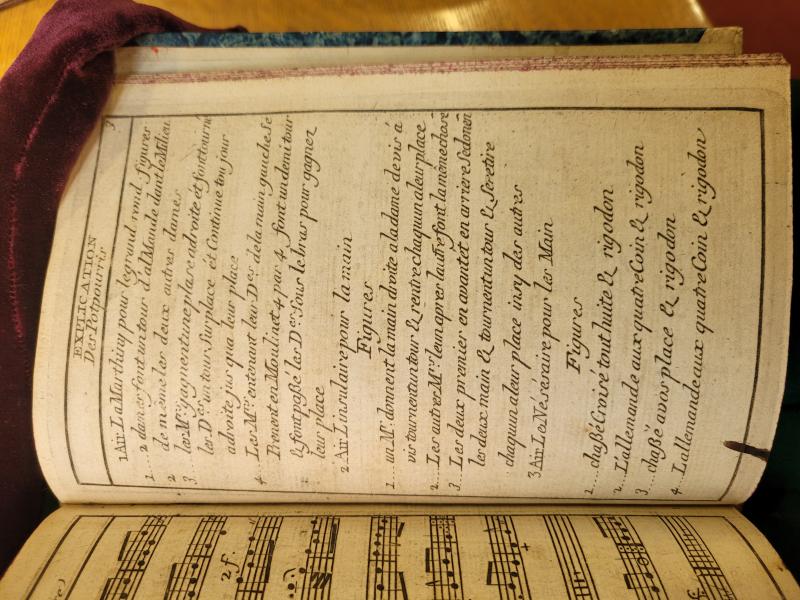 3
EXPLICATION
Des Potpourris
1 Air. La Marthiny pour le grand rond figures
1 ... 2 dames font un tour d'al'Mande dant le Milieu
2 de même les deux autres dames
3 ... les Mrs gagnent une place adroite et font tourner
les Des un tour Sur place et Continue toujour
adroite jus qua leur place
4 ... Les Mrs en tenant leur Des de la main gauche se
Prenent en Moulinet 4 par 4, font un demi tour
& font passé les Des Sous le bras pour gagnez
leur place
2 Air. L'insulaire pour la main
Figures
1 ... un Mr donnent la main droite a la dame de vis á
vis tournent un tour & rentre chaqu'un a leur place
2 ... Les autres Mrs leur apres l'autre font la même chose
3 ... Les deux premier en avantét en arriere se donen
les deux main & tournent un tour & se retre
chaqu'un a leur place insy des autres
3 Air. Le Néséraire pour les Main
Figures
1 ... chaßé Croisé tout huite & rigodon
2 ... L'allemande aux quatre Coin & rigodon
3 ... chaßé avos place & rigodon
4 ... L'allemande aux quatre Coin & rigodon
2 f.